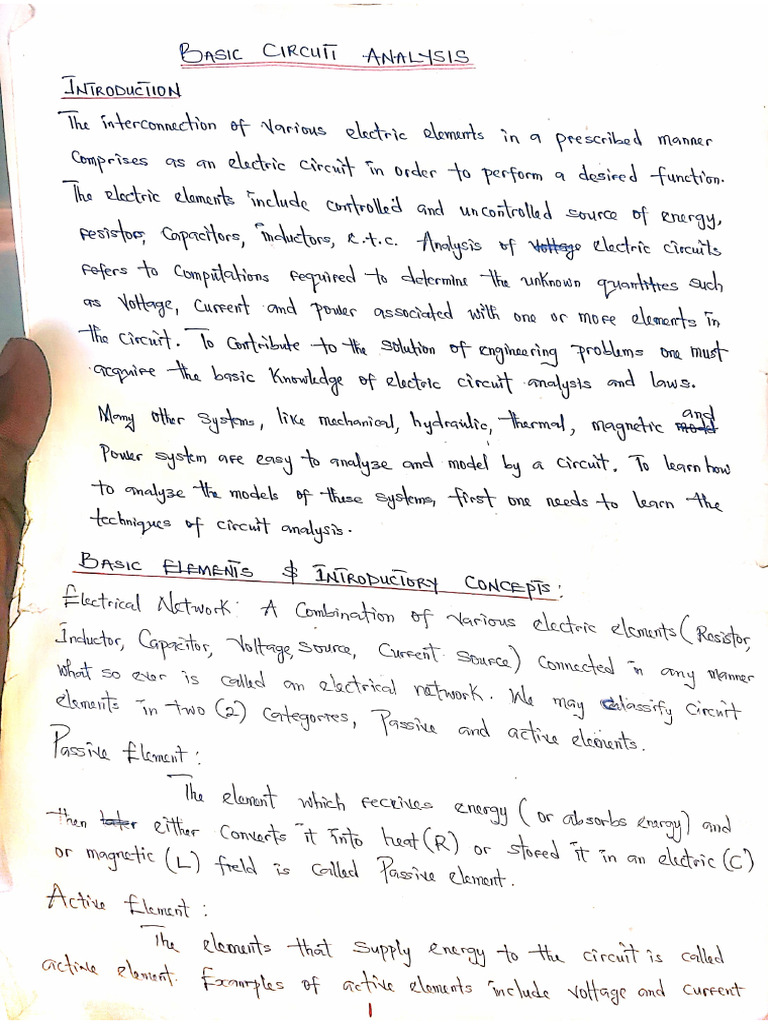 BASIC CIRCUIT ANALYSIS
INTRODUCTION
The interconnection of various electric elements in a prescribed manner
Comprises as an electric circuit in order to perform a desired function.
The electric elements include controlled and uncontrolled source of energy,
resistor, Capacitors, inductors, e.t.c. Analysis of voltage electric circuits
refers to Computations required to determine the unknown quantities such
as Voltage, Current and power associated with one or more elements in
the circuit. To contribute to the solution of engineering problems one must
acquire the basic Knowledge of electric circuit analysis and laws.
Many other systems, like mechanical, hydraulic, thermal, magnetic and
Power system are easy to analyze and model by a circuit. To learn how
to analyze the models of these systems, first one needs to learn the
techniques of circuit analysis.
BASIC ELEMENTS & INTRODUCTORY CONCEPTS:
Electrical Network: A Combination of various electric elements (Resistor,
Inductor, Capacitor, Voltage source, Current source) Connected in any manner
what so ever is called an electrical network. We may classify circuit
elements in two (2) categories, Passive and active elements.
Passive Element:
The element which receives energy (or absorbs energy) and
then later either converts it into heat (R) or stored it in an electric (C)
or magnetic (L) field is called Passive element.
Active Element:
The elements that supply energy to the circuit is called
active element. Examples of active elements include voltage and current
1